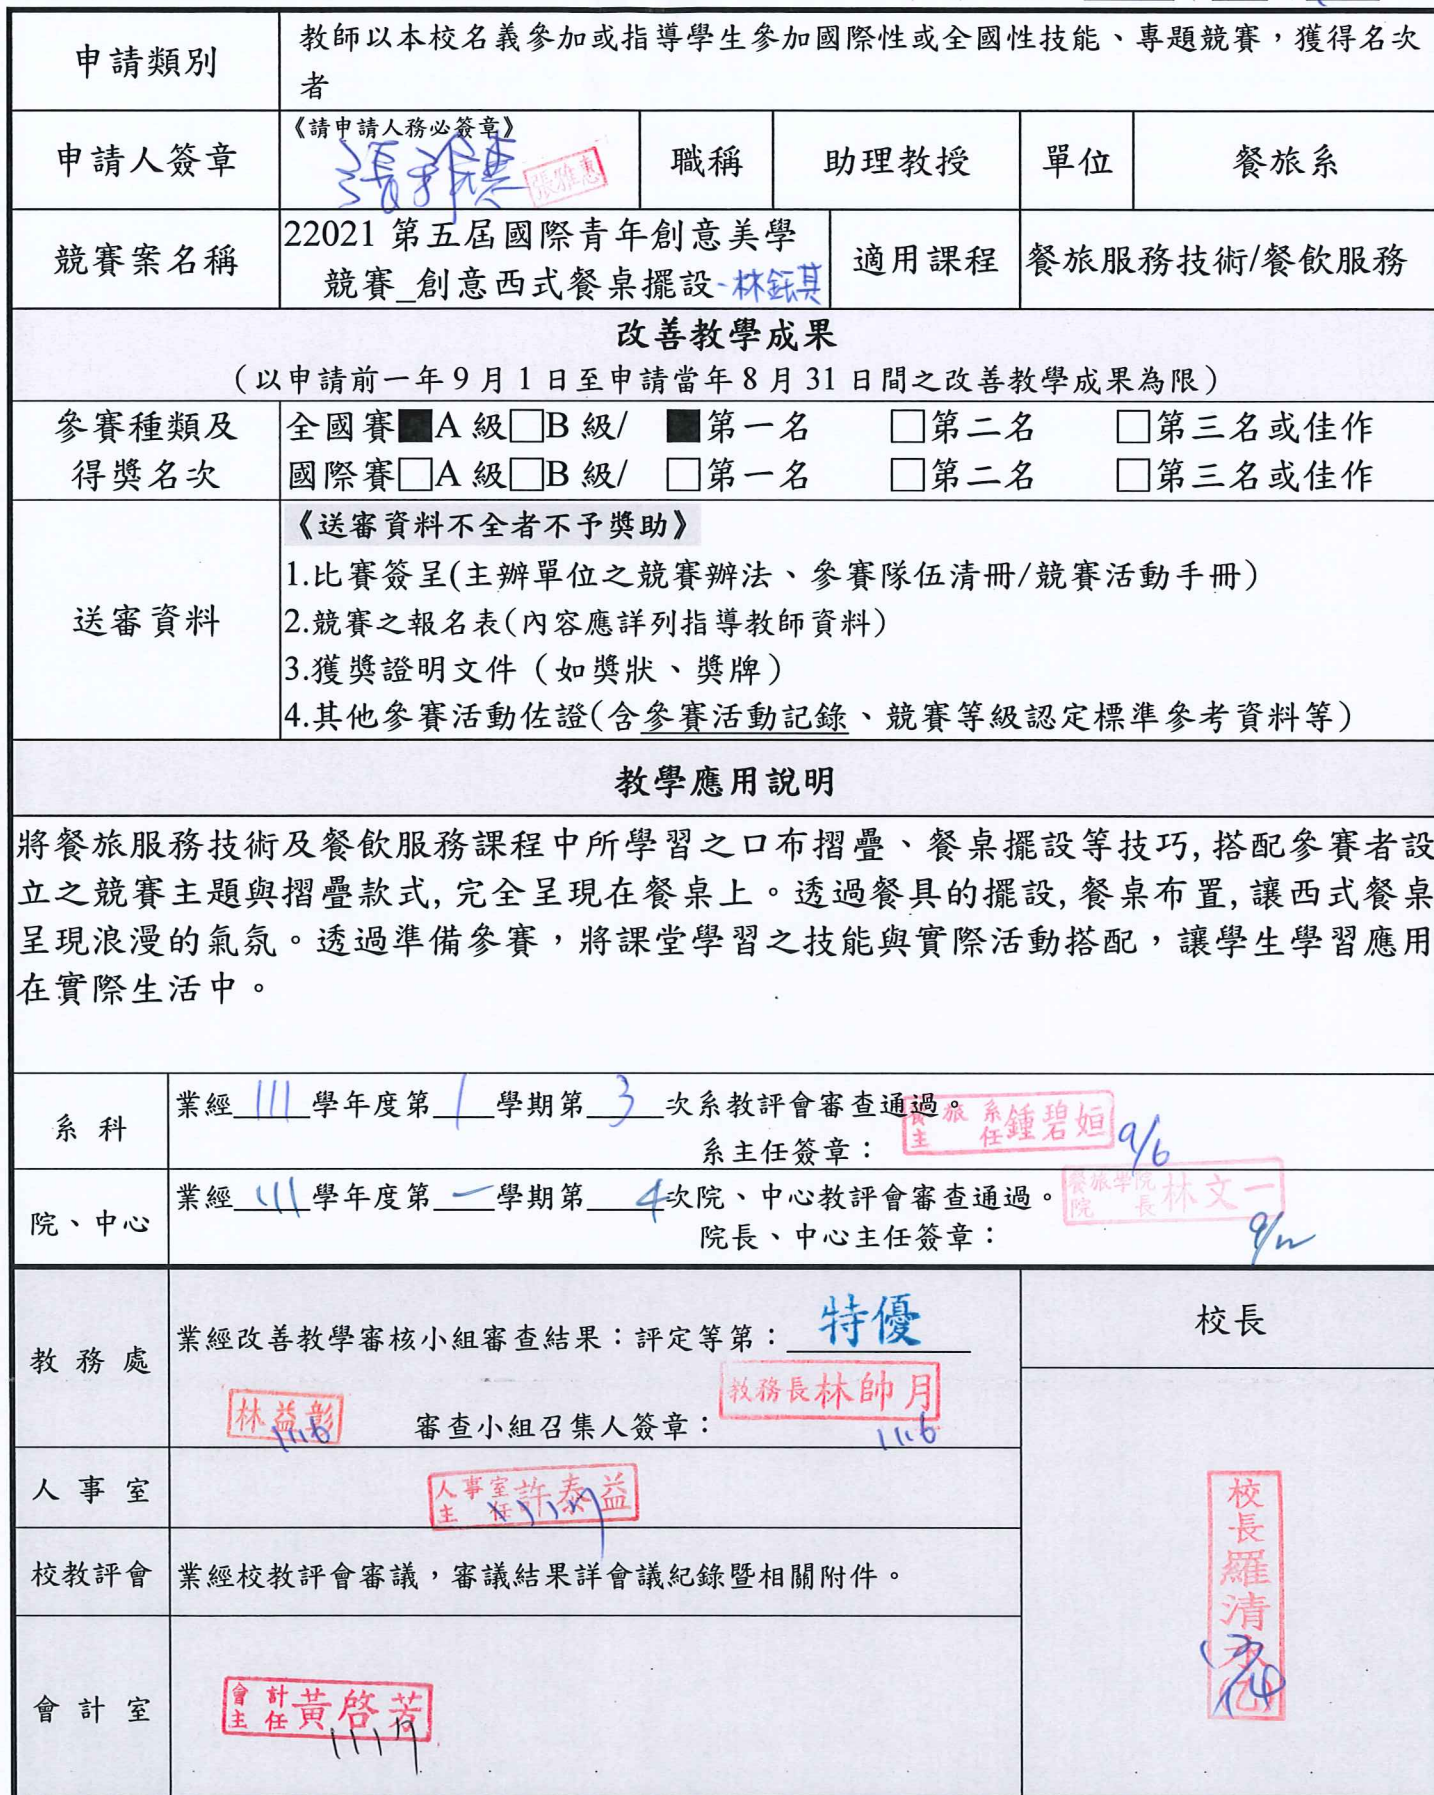 申請類別
教師以本校名義參加或指導學生參加國際性或全國性技能、專題競賽，獲得名次
者
申請人簽章
《請申請人務必簽章》
張雅惠
職稱
助理教授
單位
餐旅系
競賽案名稱
22021 第五屆國際青年創意美學
競賽_創意西式餐桌擺設-林鈺其
適用課程
餐旅服務技術/餐飲服務
改善教學成果
（以申請前一年 9 月 1 日至申請當年 8 月 31 日間之改善教學成果為限）
參賽種類及
得獎名次
全國賽■A 級□B 級/ ■第一名 □第二名 □第三名或佳作
國際賽□A 級□B 級/ □第一名 □第二名 □第三名或佳作
送審資料
《送審資料不全者不予獎助》
1.比賽簽呈(主辦單位之競賽辦法、參賽隊伍清冊/競賽活動手冊)
2.競賽之報名表(內容應詳列指導教師資料)
3.獲獎證明文件（如獎狀、獎牌）
4.其他參賽活動佐證(含參賽活動記錄、競賽等級認定標準參考資料等)
教學應用說明
將餐旅服務技術及餐飲服務課程中所學習之口布摺疊、餐桌擺設等技巧,搭配參賽者設
立之競賽主題與摺疊款式,完全呈現在餐桌上。透過餐具的擺設,餐桌布置,讓西式餐桌
呈現浪漫的氣氛。透過準備參賽，將課堂學習之技能與實際活動搭配，讓學生學習應用
在實際生活中。
系科
業經 111 學年度第 1 學期第 3 次系教評會審查通過。
系主任簽章：
餐旅系主任 鍾碧姮
9/6
院、中心
業經 111 學年度第 一 學期第 4 次院、中心教評會審查通過。
院長、中心主任簽章：
餐旅學院院長 林文一
9/12
教務處
業經改善教學審核小組審查結果：評定等第：特優
林益彰
1116
審查小組召集人簽章：
教務長林帥月
1116
校長
人事室
人事室主任 許泰益
校教評會
業經校教評會審議，審議結果詳會議紀錄暨相關附件。
會計室
會計主任 黃啓芳
1117
校長羅清